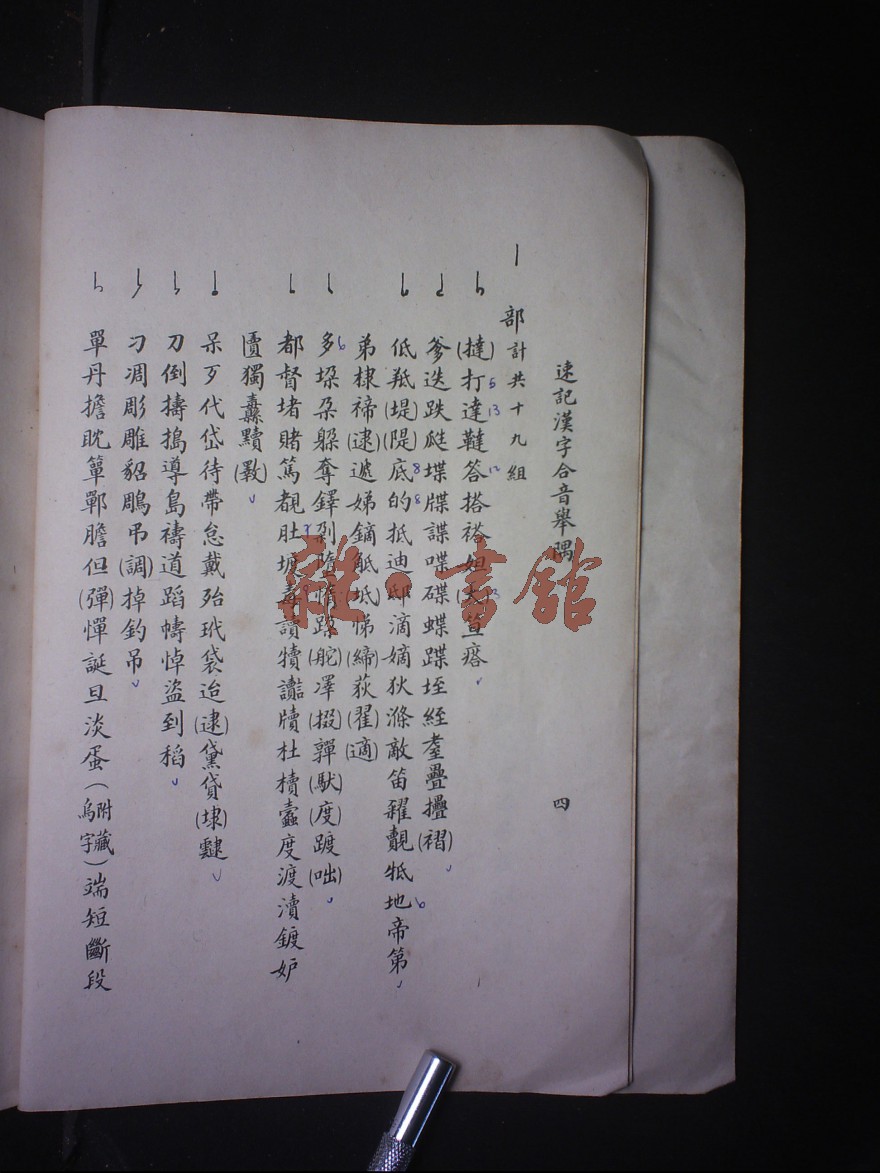 速記漢字合音舉隅 四
部計共十九組
(撻)打達韃答搭褡妲大笪瘩
爹迭跌瓞堞牒諜喋碟蝶蹀垤絰耋疊㩹(褶)
低羝(堤)(隄)底的抵迪邸滴嫡狄滌敵笛糴覿牴地帝第
弟棣禘(逮)遞娣鏑觝坻悌(締)荻(翟)(適)
多垛朵躲奪鐸剁墮惰跺(舵)凙(掇)嚲(馱)(度)踱(咄)
都督堵賭篤覩肚塘毒讀犢讟牘杜櫝蠹度渡瀆鍍妒
匵獨纛黷(斁)
呆歹代岱待帶怠戴殆玳袋迨(逮)黛貸(埭)靆
刀倒擣搗導島禱道蹈幬悼盜到稻
刁凋彫雕貂鵰吊(調)掉釣吊
單丹擔眈簞鄲膽但(彈)憚誕旦淡蛋(附藏烏字)端短斷段
雜·書館